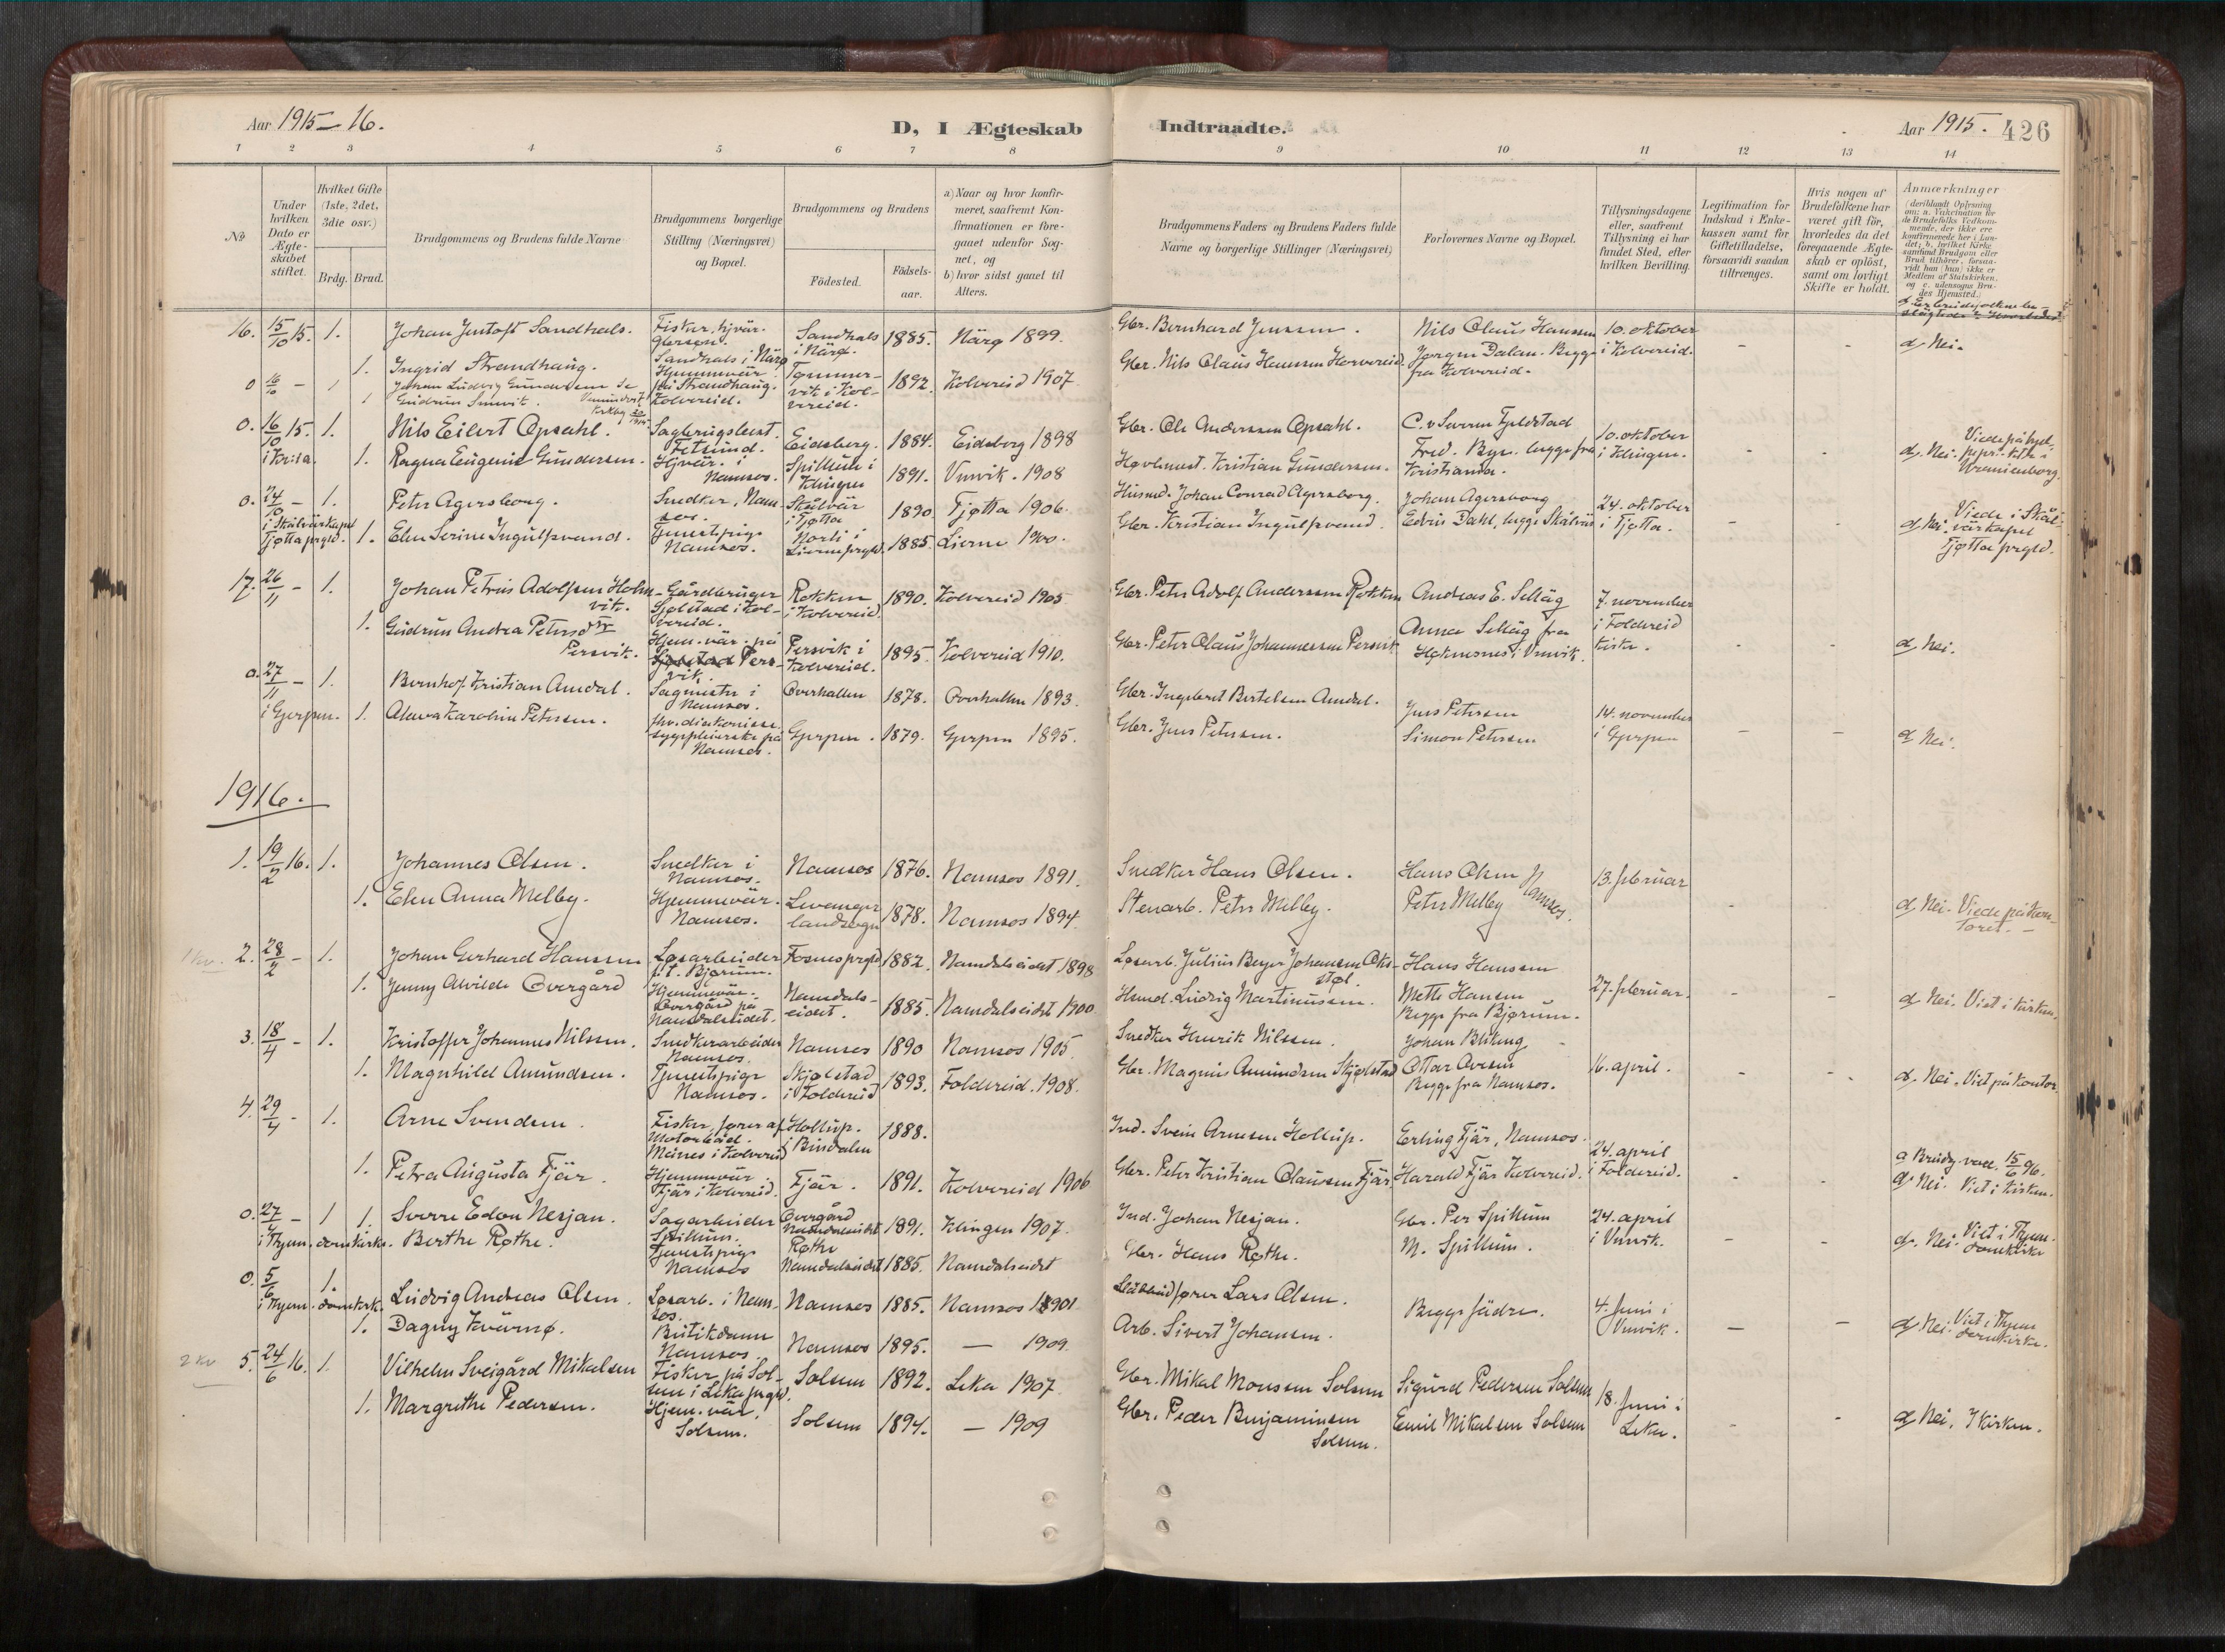 Aar 1915–16. D, I Ægteskab Indtraadte. Aar 1915. 426
1 2 3 4 5 6 7 8 9 10 11 12 13 14
No
Under hvilken Dato er Ægte-skabet stiftet.
Hvilket Gifte (1ste, 2det, 3die osv.)
Brdg. Brud.
Brudgommens og Brudens fulde Navne
Brudgommens borgerlige Stilling (Næringsvei) og Bopæl.
Brudgommens og Brudens
Födested. Födsels-aar.
a) Naar og hvor konfir-meret, saafremt Kon-firmationen er fore-gaaet udenfor Sog-net, og
b) hvor sidst gaaet til Alters.
Brudgommens Faders og Brudens Faders fulde Navne og borgerlige Stillinger (Næringsvei)
Forlovernes Navne og Bopæl.
Tillysningsdagene eller, saafremt Tillysning ei har fundet Sted, efter hvilken Bevilling.
Legitimation for Indskud i Enke-kassen samt for Giftetilladelse, forsaavidt saadan tiltrænges.
Hvis nogen af Brudefolkene har været gift för, hvorledes da det foregaaende Ægte-skab er oplöst, samt om lovligt Skifte er holdt.
Anmærkninger
16. 15/10 15. 1. Johan Justoft Sandhals. Fisker, hjvär. Sandhals i Närø. 1885. Närø 1899. Gbr. Bernhard Jenssen. Nils Claus Hanssen 10. oktober - - d, Nei.
1. Ingrid Strandhaug. Sandhals i Närø Hjemmevär. på Strandhaug. Kolvereid. 1892. Kolvereid 1907. Gbr. Nils Claus Hanssen Horvereid. Jørgen Dalan. Begge fra Kolvereid. i Kolvereid.
0. 16/10 15. 1. Nils Eilert Opsahl. Fetsund. Eidsberg. 1884. Eidsberg 1898 Gbr. Ole Anderssen Opsahl. 10. oktober
i Kr.ia. 1. Ragna Eugenie Gundersen. Hjvär. i Namsos. Spillum i Klingen 1891. Vemvik. 1908 Kristian Gundersen. Fred. Bye. begge fra Kristiania. i Klingen. - - d. Nei. Uranienborg.
0. 24/10 – 1. Peter Agersborg. Snedker, Namsos. Skålvär i Tjøtta 1890 Tjøtta 1906. Husmd. Johan Conrad Agersborg. Johan Agersborg 24. oktober
i Skålvärkapel Tjøtta prgld. 1. Elen Serine Ingulfsvand. Tjenestpige Namsos. Nordli i Lierne prgld. 1885. Lierne 1900. Gbr. Kristian Ingulfsvand. Edvin Dahl, begge Skålvär i Tjøtta. - - d. Nei. Viede i Skål-värkapel Tjøtta prgld.
17. 26/11 – 1. Johan Petrus Adolfsen Holm-vik. Gårdbruger Sjølstad i Kol-vereid. Rokken i Kolvereid. 1890. Kolvereid 1905 Gbr. Peter Adolf Anderssen Rokken Andreas E. Selläg 7. november
1. Gudrun Andrea Petersd. Persvik. Hjem. vär. på Persvik. Persvik i Kolvereid. 1895. Kolvereid 1910. Gbr. Peter Claus Johannessen Persvik Anna Selläg fra i Vemvik. i Foldereid kirke. - - d, Nei.
0. 27/11 – 1. Bernhof Kristian Amdal. Sagmester i Namsos. Overhallen 1878. Overhallen 1893. Gbr. Ingebret Bertelsen Amdal. Jens Petersen 14. november
i Gjerpen. 1. Karoline Petersen. fhv. diakonisse. sygepleierske på Namsos. Gjerpen. 1879. Gjerpen 1895. Gbr. Jens Petersen. Simon Petersen i Gjerpen – – d, Nei.
1916.
1. 19/2 16. 1. Johannes Olsen. Snedker i Namsos. Namsos 1876. Namsos 1891. Snedker Hans Olsen. Hans Olsen 13. februar
1. Elen Anna Melby. Hjemmevär. Namsos. Levanger landsogn 1878. Namsos 1894. Stenarb. Peter Melby. Peter Melby Namsos. - - d, Nei. Viede på kon-toret. –
2. 28/2 – 1. Johan Gerhard Hanssen Løsarbeider p.t. Bjørum. Fosnes prgld 1882. Namdalseidet 1898 Løsarb. Julius Beyer Johansen Hans Hanssen 27. februar.
1. Jenny Alvilde Overgård Hjemmevär. Overgård på Namdalseidet. Namdals-eidet. 1885. Namdalseidet 1900 Husmd. Ludvig Martinussen. Mette Hansen Begge fra Bjørum. - - d, Nei. Viet i kirken.
3. 18/4 – 1. Kristoffer Johannes Nilssen. Snedkerarbeider Namsos. Namsos 1890 Namsos 1905. Snedker Henrik Nilssen. Johan
1. Magnhild Amundsen. Tjenestpige Namsos. Skjølstad i Foldereid 1893. Foldereid. 1908. Gbr. Magnus Amundsen Skjølstad Ottar Begge fra Namsos. 16. april. - - d. Nei. Viet på kontor.
4. 29/4 – 1. Arne Svendsen. Fisker, fører af Motorbåd. i Kolvereid Hollup. i Bindalen 1888. Ind. Svein Arnesen Hollup. Erling Fjär, Namsos. 24. april
1. Petra Augusta Fjär. Hjemmevär. Fjär i Kolvereid. Fjär. 1891. Kolvereid 1906 Gbr. Peter Kristian Claussen Fjär. Harald Fjär Kolvereid. i Foldereid. - - a Brudg. vacc. 15/6 96. d. Nei. Viet i kirken.
0. 27 – 1 1. Sverre Edon Nesjan. Sagarbeider Spillum. Overgård Namdalseidet 1891. Klingen 1907. Ind. Johan Nesjan. Gbr. Per Spillum 24. april
i Thjem. domkirke. Berthe Røthe. Tjenestpige Namsos Røthe Namdalseidet 1885. Namdalseidet Gbr. Hans Røthe. M. Spillum. i Vemvik. - - d. Nei. Viet i Thjem. domkirke
0. 5/6 1. Ludvig Andreas Olsen. Løsarb. i Nam-sos. Namsos 1885. Namsos 1901. Lars Olsen. Begge fädre. 4. Juni i Vemvik.
i Thjem. domkirk. 1. Dagny Kvärnø. Butikdame Namsos. Namsos 1895. — 1909. Arb. Sivert Johansen. – – d, Nei. Viet i Thjem domkirke.
2 Kv 5. 24/6 16. 1. Vilhelm Sveigård Mikalsen Fisker på Sol-sem i Leka prgld. Solsem 1892. Leka 1907. Gbr. Mikal Monssen Solsem Sigurd Pedersen Solsem 18. Juni i Leka.
1. Margrethe Pedersen. Hjem. vär. Solsem. Solsem 1894. — 1909 Gbr. Peder Benjaminsen Solsem. Emil Mikalsen Solsem - - d, Nei. I kirken.